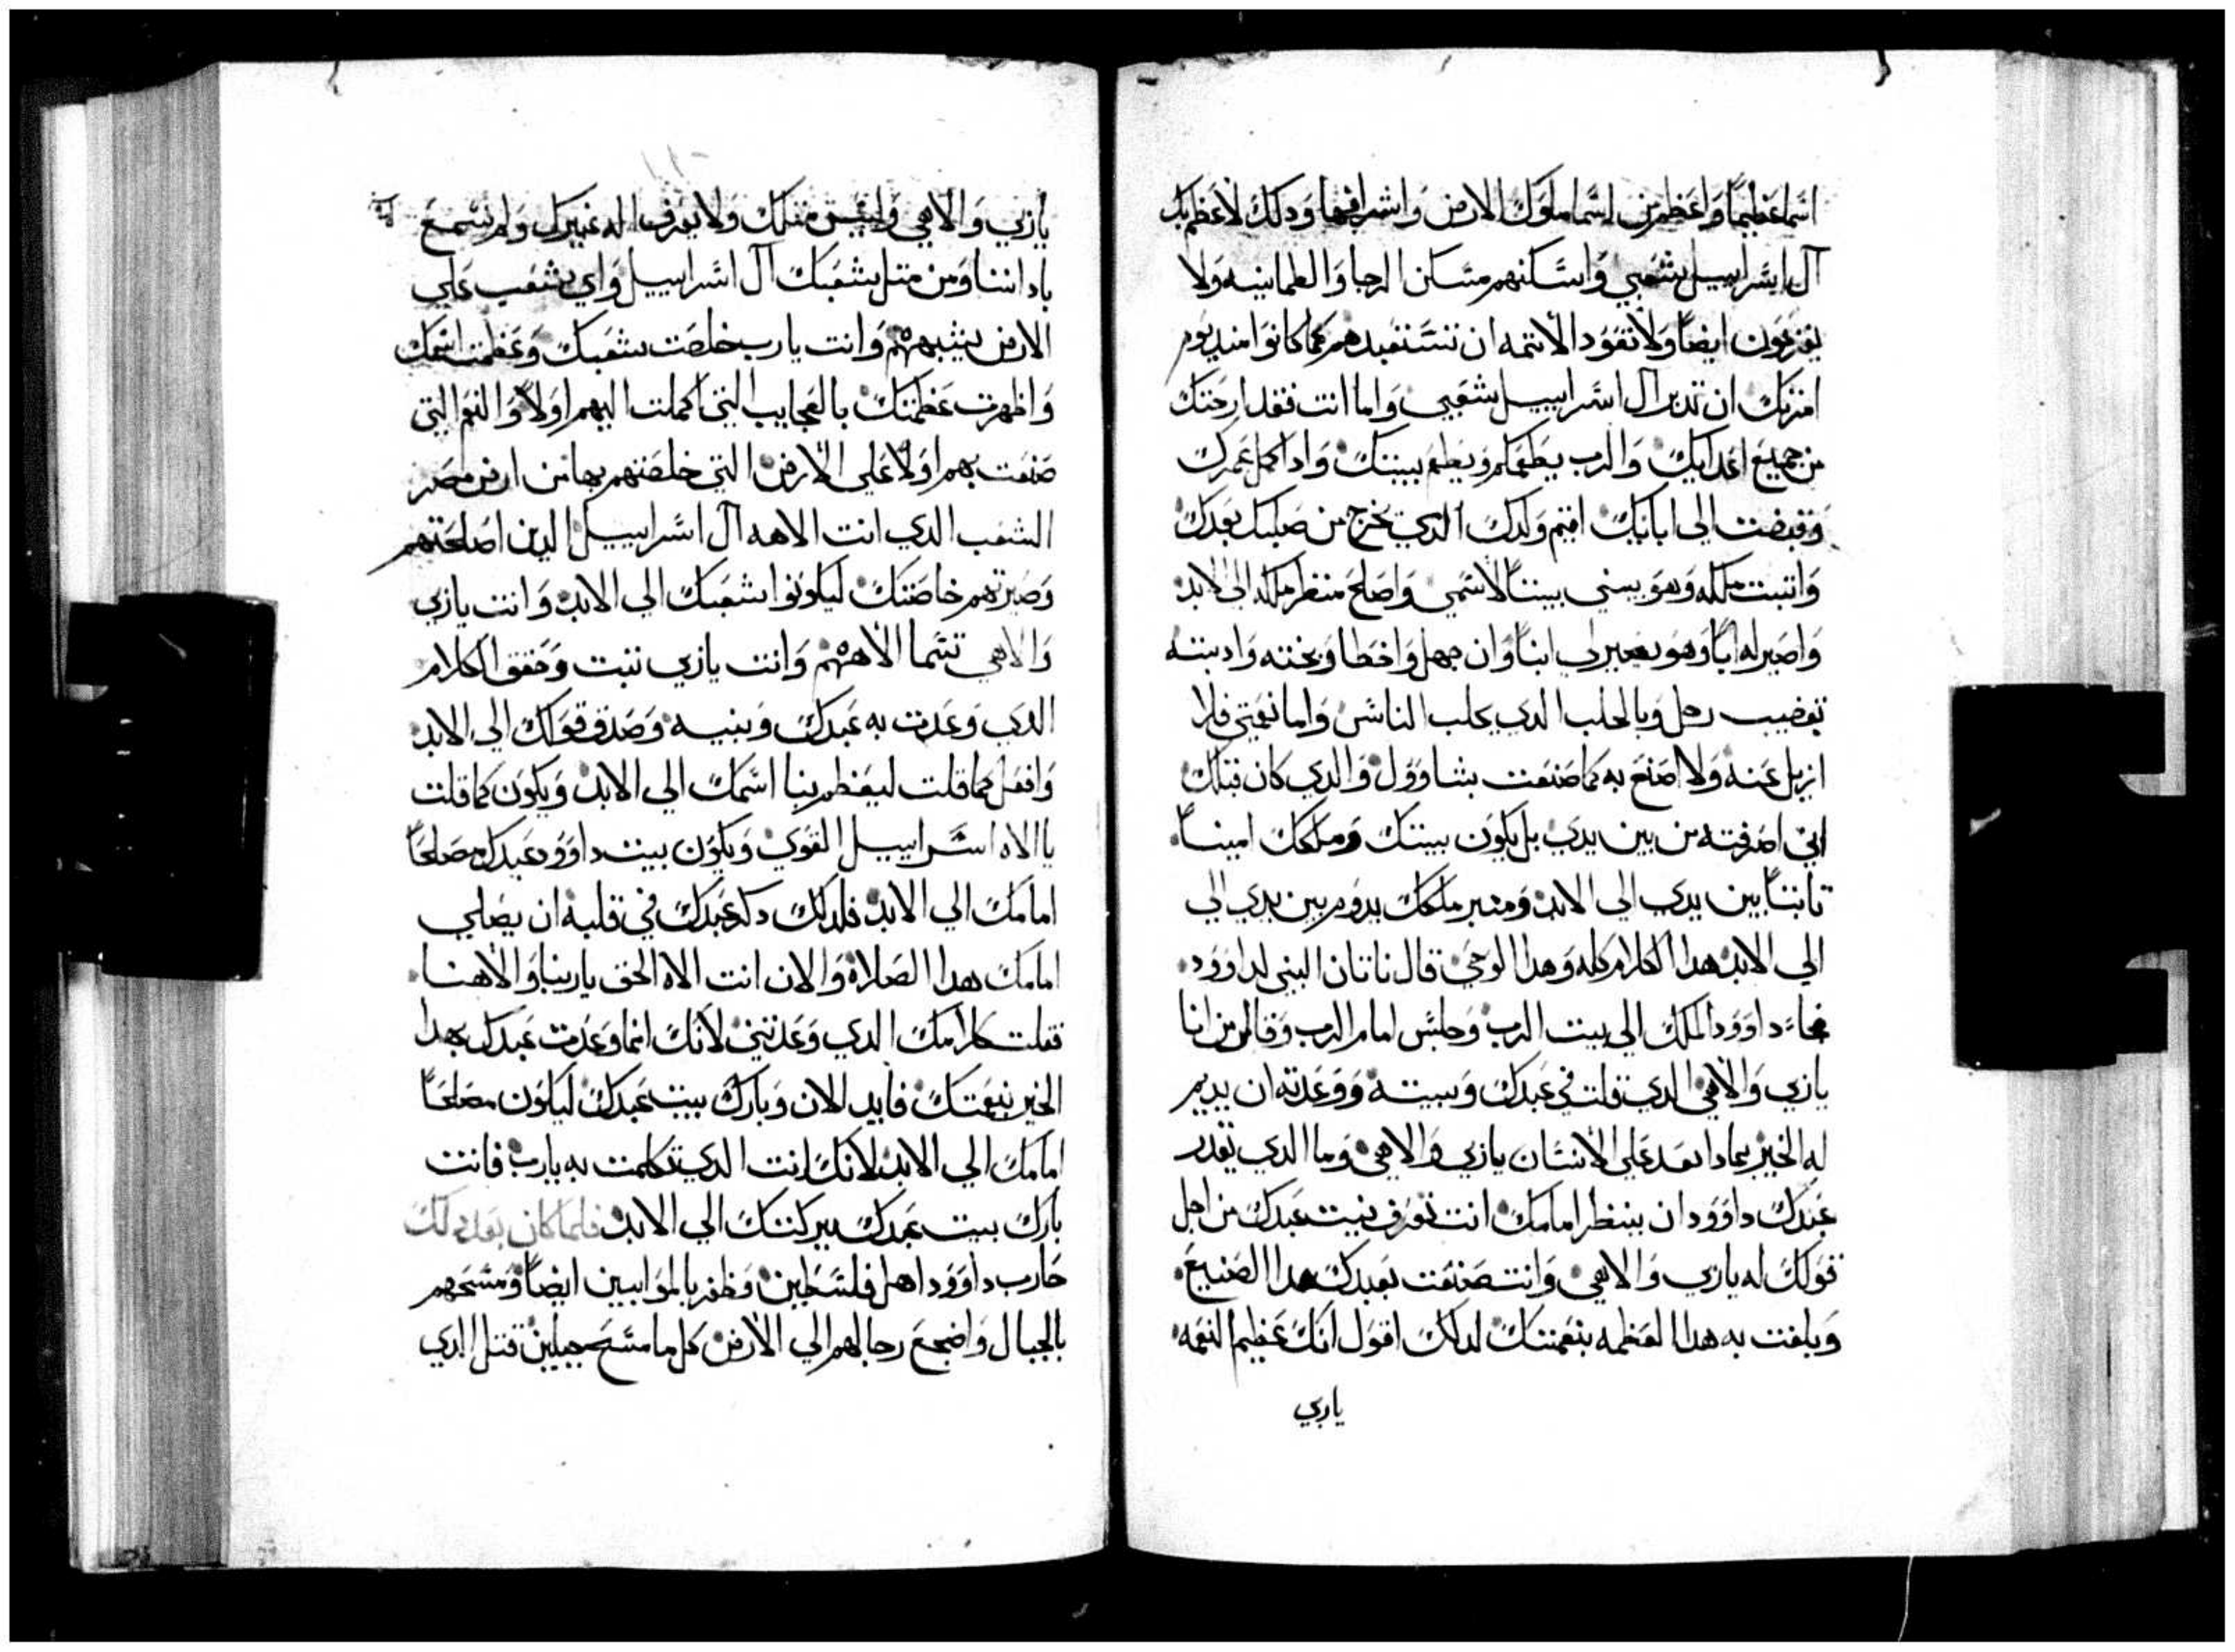 اسما عظيماً واعظم من اسما ملوك الارض واشرافها ودلك لاعظم بك
آل اسراييل شعبي واسكنهم مساكن الرجا والطمانينه ولا
يفزعون ايضاً ولا تعود الاتمه ان تستعبدهم كما كانوا مند يوم
امرتك ان تدبر آل اسراييل شعبي واما انت فقد ارحتك
من جميع اعدايك والرب يعظمكم ويعظم بيتك وادا كمل عمرك
وقبضت الي ابايك اقيم ولدك الدي يخرج من صلبك بعدك
واتبت ملكه وهو يبني بيتاً لاسمي واصلح منبر ملكه الي لابد
واصير له اباً وهو يصير لي ابناً وان جهل واخطا وبخته وادبته
بقضيب رجل وبالجلب الدي يجلب الناس واما نعمتي فلا
ازيل عنه ولا اصنع به كما صنعت بشاوول والدي كان قبلك
اني اصرفته من بين يدي بل يكون بيتك وملكك امينا
تابتاً بين يدي الي الابد ومنبر ملكك يدوم بين يدي الي
الي الابد هدا الكلام كله وهدا الوحي قال ناتان النبي لداوود
فجاء داوود الملك الي بيت الرب وجلس امام الرب وقال من انا
ياربي والاهي الدي قلت في عبدك وبيته ووعدته ان يديم
له الخير بمادا بعد علي الانسان ياربي والاهي وما الدي يقدر
عبدك داوود ان ينظر امامك انت تعرف نيت عبدك من اجل
قولك له ياربي والاهي وانت صنعت بعبدك هدا الصنيع
وبلغت به هدا العظمه بنعمتك لدلك اقول انك عظيم النعمه
ياربي
ياربي والاهي وليس متلك ولا يعرف اله غيرك ولم نسمع
باداننا ومن متل شعبك آل اسراييل واي شعب علي
الارض يشبههم وانت يارب خلصت شعبك وعظمت اسمك
واظهرت عظمتك بالعجايب التي اكملت اليهم اولاً والنعم التي
صنعت بهم اولاً علي الارض التي خلصتهم بها من ارض مصر
الشعب الدي انت الاهه آل اسراييل الدين اصلحتهم
وصيرتهم خاصتك ليكونوا شعبك الي الابد وانت ياربي
والاهي تسما الاههم وانت ياربي تبت وحقق الكلام
الدي وعدت به عبدك وبنيه وصدق قولك الي الابد
وافعل كما قلت ليعظم بنا اسمك الي الابد ويكون كما قلت
يا الاه اسراييل القوي ويكون بيت داوود عبدك مصلحاً
امامك الي الابد فلدلك دكر عبدك في قلبه ان يصلي
امامك هدا الصلاة والان انت الاه الحق ياربنا والاهنا
فقلت كلامك الدي وعدتني لانك انما وعدت عبدك بهدا
الخير بنعمتك فابد الان وبارك بيت عبدك ليكون مصلحاً
امامك الي الابد لانك انت الدي تكلمت به يارب فانت
بارك بيت عبدك ببركتك الي الابد فلما كان بعد دلك
حارب داوود اهل فلسطين وظفر بالموابيين ايضاً ومسحهم
بالحبال واضجع رجالهم الي الارض كل ما مسح بحبلين قتل الدي